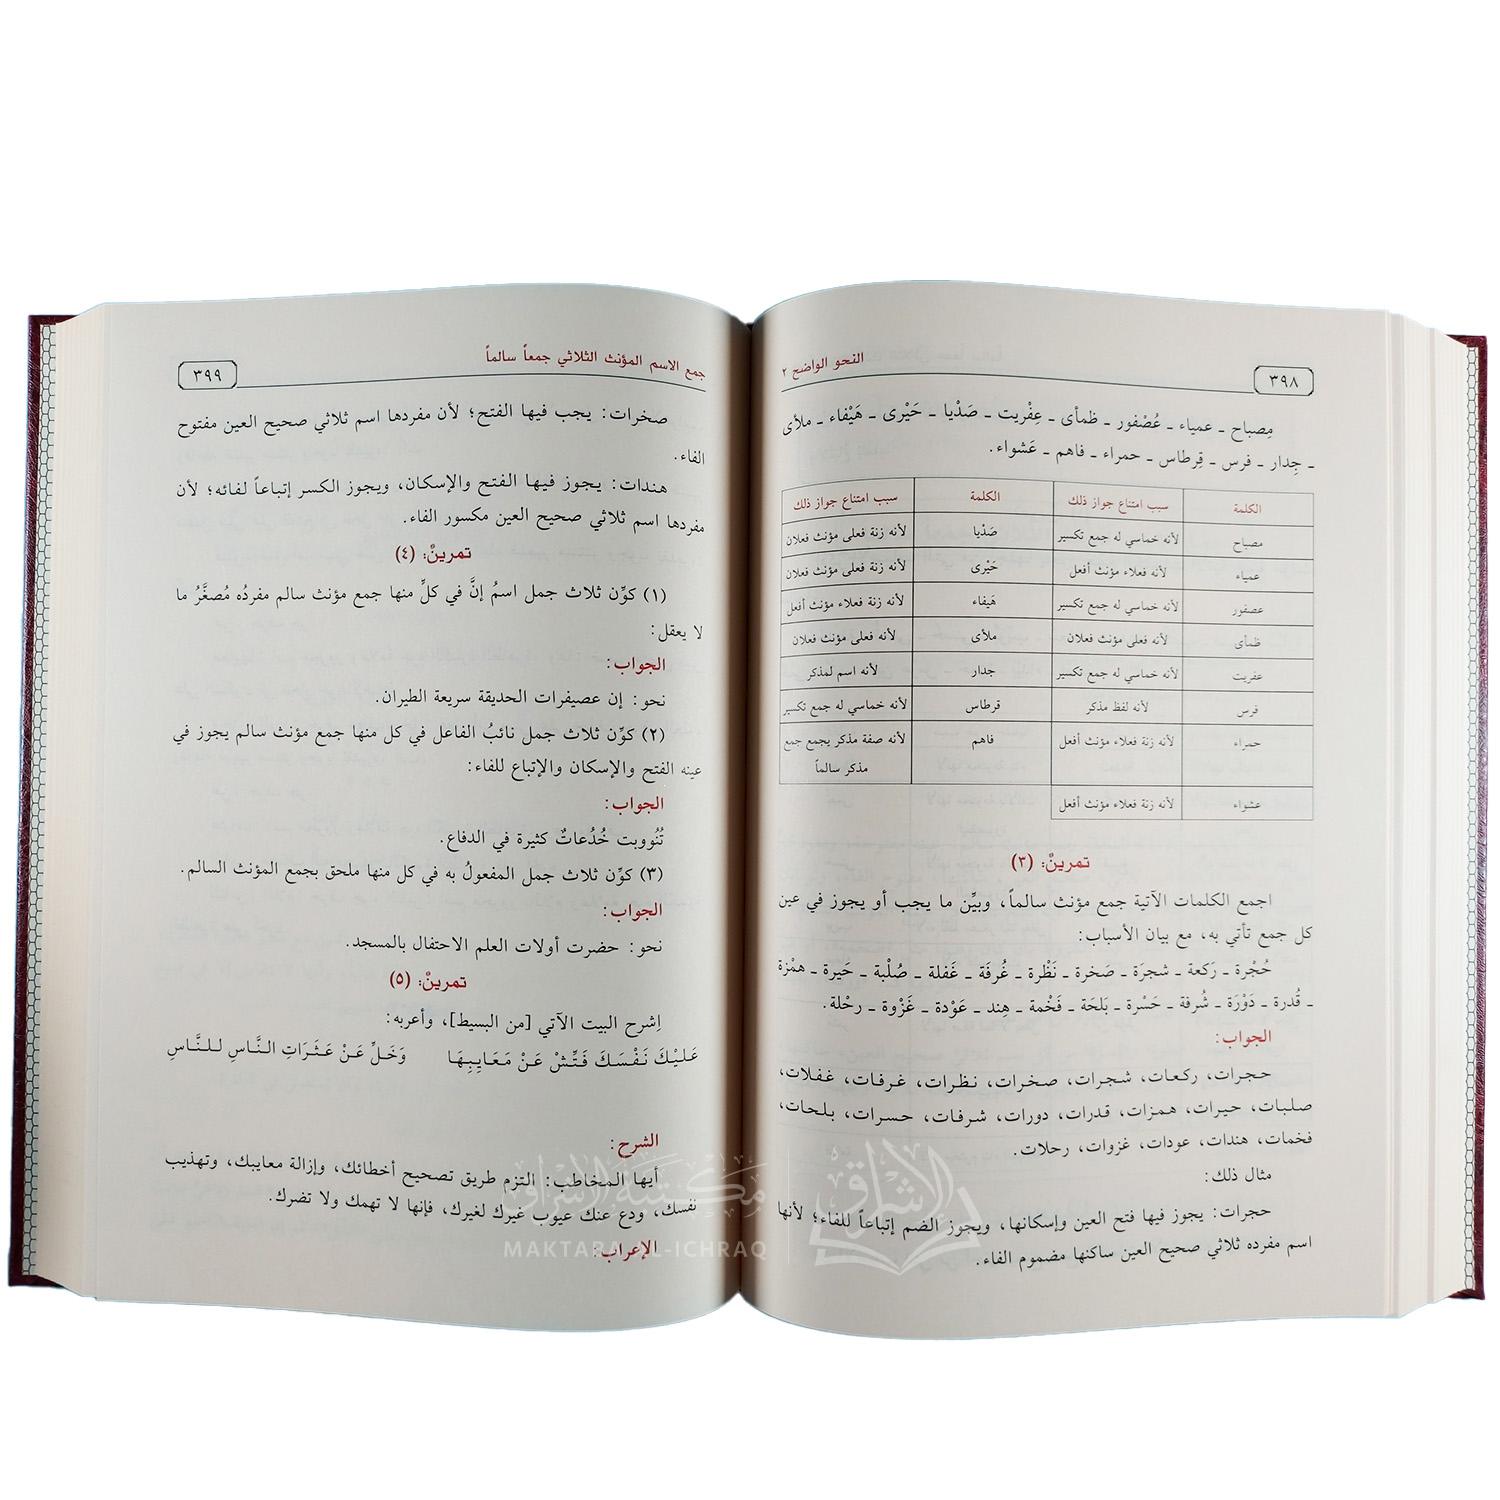 ٣٩٨
النحو الواضح ٢
مِصباح ـ عمياء ـ عُصْفور ـ ظمأى ـ عِفْريت ـ صَدْيا ـ حَيْرى ـ هَيْفاء ـ ملأى
ـ جِدار ـ فرس ـ قِرطاس ـ حمراء ـ فاهم ـ عَشواء.
الكلمة سبب امتناع جواز ذلك الكلمة سبب امتناع جواز ذلك
مصباح لأنه خماسي له جمع تكسير صَدْيا لأنه زنة فعلى مؤنث فعلان
عمياء لأنه فعلاء مؤنث أفعل حَيْرى لأنه زنة فعلى مؤنث فعلان
عصفور لأنه خماسي له جمع تكسير هَيفاء لأنه زنة فعلاء مؤنث أفعل
ظمأى لأنه فعلى مؤنث فعلان ملأى لأنه فعلى مؤنث فعلان
عفريت لأنه خماسي له جمع تكسير جدار لأنه اسم لمذكر
فرس لأنه لفظ مذكر قرطاس لأنه خماسي له جمع تكسير
حمراء لأنه زنة فعلاء مؤنث أفعل فاهم لأنه صفة مذكر يجمع جمع
مذكر سالماً
عشواء لأنه زنة فعلاء مؤنث أفعل
تمرينٌ: (٣)
اجمع الكلمات الآتية جمع مؤنث سالماً، وبيِّن ما يجب أو يجوز في عين
كل جمع تأتي به، مع بيان الأسباب:
حُجْرة ـ رَكعة ـ شجرَة ـ صَخرة ـ نَظْرة ـ غُرفَة ـ غَفلة ـ صُلْبة ـ حَيرة ـ همْزة
ـ قُدرة ـ دَوْرَة ـ شُرفة ـ حَسْرة ـ بَلحَة ـ فَخْمة ـ هِند ـ عَوْدة ـ غَزْوة ـ رحْلة.
الجواب:
حجرات، ركعات، شجرات، صخرات، نظرات، غرفات، غفلات،
صلبات، حيرات، همزات، قدرات، دورات، شرفات، حسرات، بلحات،
فخمات، هندات، عودات، غزوات، رحلات.
مثال ذلك:
حجرات: يجوز فيها فتح العين وإسكانها، ويجوز الضم إتباعاً للفاء؛ لأنها
اسم مفرده ثلاثي صحيح العين ساكنها مضموم الفاء.
جمع الاسم المؤنث الثلاثي جمعاً سالماً
٣٩٩
صخرات: يجب فيها الفتح؛ لأن مفردها اسم ثلاثي صحيح العين مفتوح
الفاء.
هندات: يجوز فيها الفتح والإسكان، ويجوز الكسر إتباعاً لفائه؛ لأن
مفردها اسم ثلاثي صحيح العين مكسور الفاء.
تمرينٌ: (٤)
(١) كوِّن ثلاث جمل اسمُ إنَّ في كلِّ منها جمع مؤنث سالم مفردُه مُصغَّرُ ما
لا يعقل:
الجواب:
نحو: إن عصيفرات الحديقة سريعة الطيران.
(٢) كوِّن ثلاث جمل نائبُ الفاعل في كل منها جمع مؤنث سالم يجوز في
عينه الفتح والإسكان والإتباع للفاء:
الجواب:
تُنُووبت خُدُعاتٌ كثيرة في الدفاع.
(٣) كوِّن ثلاث جمل المفعولُ به في كل منها ملحق بجمع المؤنث السالم.
الجواب:
نحو: حضرت أولات العلم الاحتفال بالمسجد.
تمرينٌ: (٥)
اِشرح البيت الآتي [من البسيط]، وأعربه:
عَلَيْكَ نَفْسَكَ فَتِّشْ عَنْ مَعَايِبِهَا وَخَلِّ عَنْ عَثَرَاتِ النَّاسِ لِلنَّاسِ
الشرح:
أيها المخاطب: التزم طريق تصحيح أخطائك، وإزالة معايبك، وتهذيب
نفسك، ودع عنك عيوب غيرك لغيرك، فإنها لا تهمك ولا تضرك.
الإعراب:
مكتبة الإشراق
MAKTABA AL-ICHRAQ
الإشراق